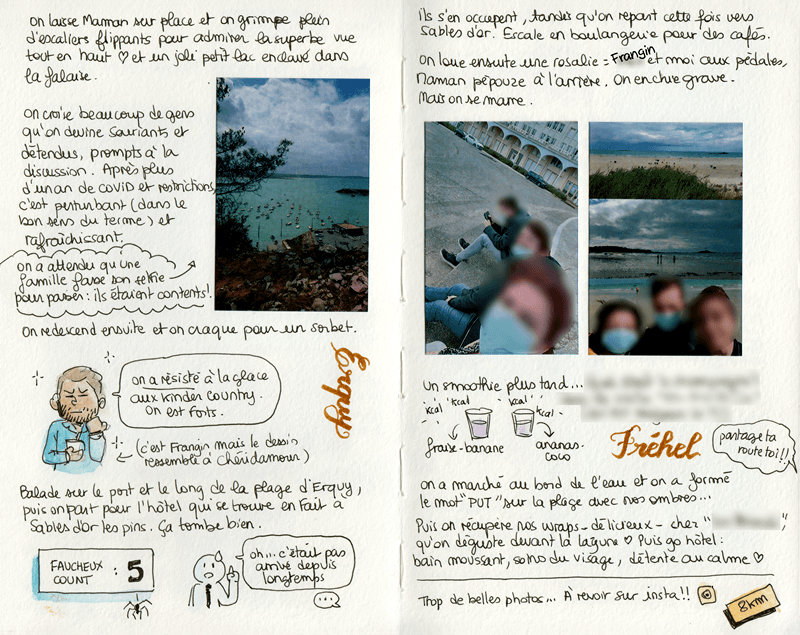 on laisse Maman sur place et on grimpe plein
d'escaliers flippants pour admirer la superbe vue
tout en haut ♡ et un joli petit lac enclavé dans
la falaise.
on croise beaucoup de gens
qu'on devine souriants et
détendus, prompts à la
discussion. Après plus
d'un an de covid et restrictions
c'est perturbant (dans le
bon sens du terme) et
rafraîchissant.
on a attendu qu'une
famille fasse son selfie
pour passer : ils étaient contents !
on redescend ensuite et on craque pour un sorbet.
on a résisté à la glace
aux kinder country.
on est forts.
(c'est Frangin mais le dessin
ressemble à chéridamour)
Erquy
Balade sur le port et le long de la plage d'Erquy,
puis on part pour l'hôtel qui se trouve en fait à
Sables d'or les pins. Ça tombe bien.
FAUCHEUX
COUNT : 5
oh... c'était pas
arrivé depuis
longtemps
ils s'en occupent, tandis qu'on repart cette fois vers
Sables d'or. Escale en boulangerie pour des cafés.
On loue ensuite une rosalie : Frangin et moi aux pédales,
Maman pépouze à l'arrière. On en chie grave.
Mais on se marre.
un smoothie plus tard...
kcal kcal kcal kcal
fraise-banane
ananas-
coco
Fréhel
partage ta
route toi !!
on a marché au bord de l'eau et on a formé
le mot "PUT" sur la plage avec nos ombres...
Puis on récupère nos wraps - délicieux - chez "
qu'on déguste devant la lagune ♡ Puis go hôtel :
bain moussant, soins du visage, détente au calme ♡
Trop de belles photos... À revoir sur insta !!
8km